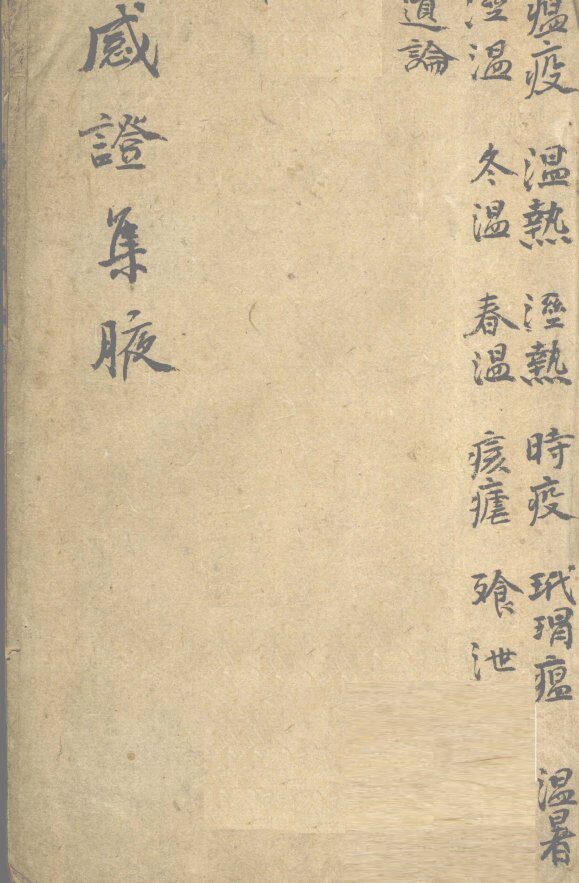 瘟疫 温熱 溼熱 時疫 玳瑁瘟 温暑
溼温 冬温 春温 痎瘧 飱泄
遺論
感證集腋